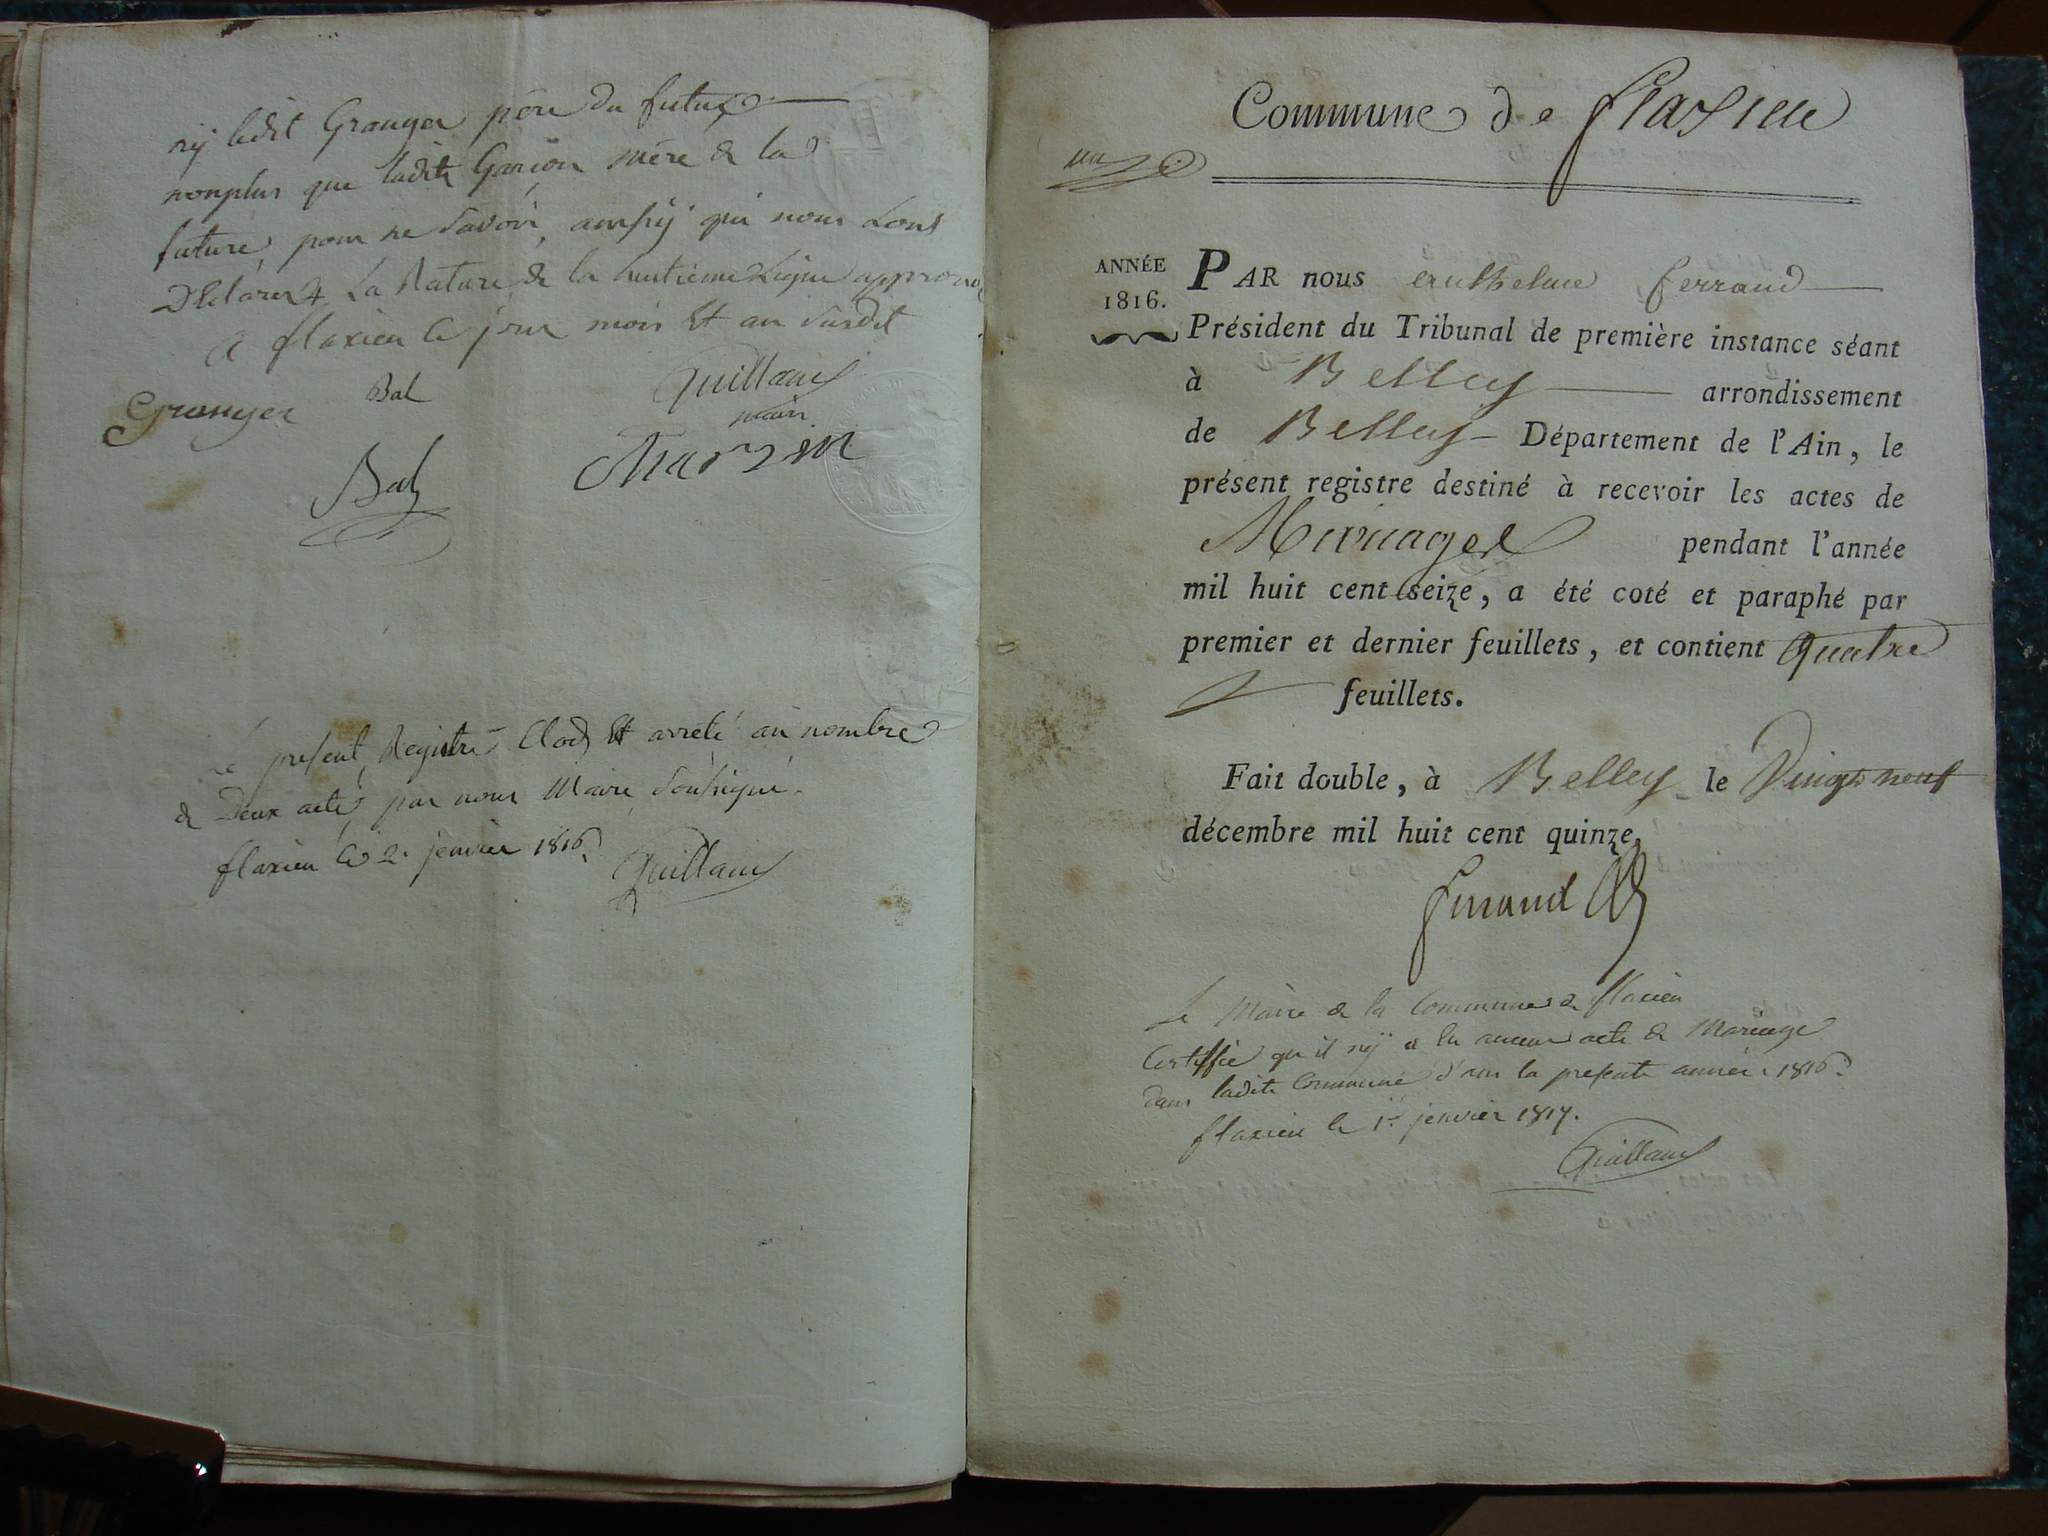 ny ledit Granger père du futur
nonplus que ladite Garçon mère de la
future, pour ne savoir, ainssy qui nous Lont
Déclaré La Rature de la huitieme Ligne approuvé
a flaxieu le jour mois Et an susdit
Granger Bal Guillam
maire
Bal
le present Registre Clos Et arreté au nombre
de Deux actes par nous Maire soussigné.
flaxieu le 2. janvier 1816.
Guillam
Commune de flaxieu
un
ANNÉE
1816.
PAR nous anthelme ferrand
Président du Tribunal de première instance séant
à Belley arrondissement
de Belley Département de l'Ain, le
présent registre destiné à recevoir les actes de
Mariages pendant l'année
mil huit cent seize, a été coté et paraphé par
premier et dernier feuillets, et contient quatre
feuillets.
Fait double, à Belley le Vingt neuf
décembre mil huit cent quinze,
ferrand
Le Maire de la Commune de flaxieu
Certiffie qu'il n'y a Eu aucun acte de Mariage
dans ladite Commune d'ans la presente année 1816.
flaxieu le 1er janvier 1817.
Guillam